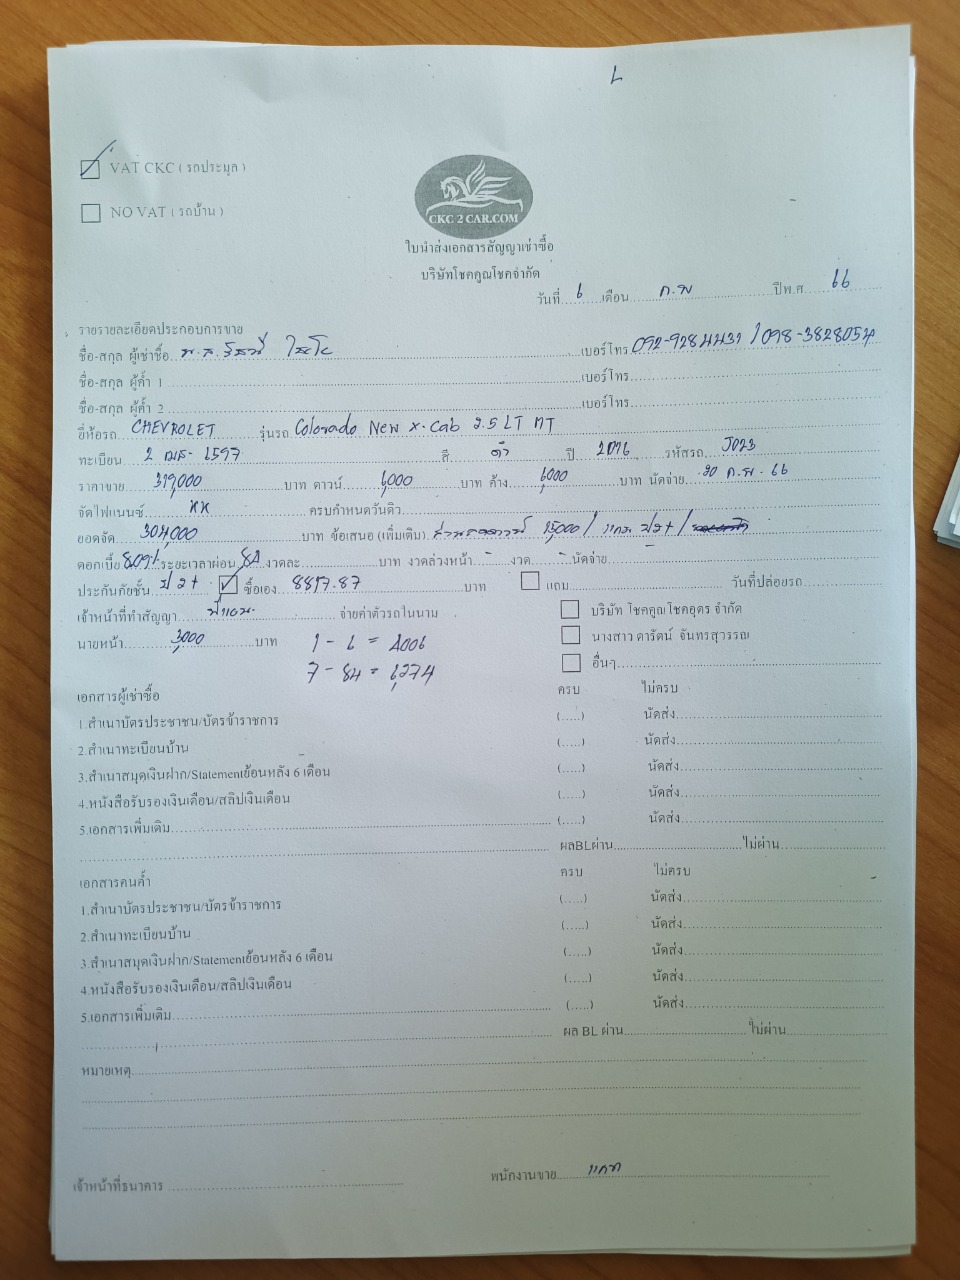 L
VAT CKC ( รถประมูล )
NO VAT ( รถบ้าน )
CKC 2 CAR.COM
ใบนำส่งเอกสารสัญญาเช่าซื้อ
บริษัทโชคคูณโชคจำกัด
วันที่ 6 เดือน ก.พ ปีพ.ศ. 66
รายรายละเอียดประกอบการขาย
ชื่อ-สกุล ผู้เช่าซื้อ น.ส. เบอร์โทร
ชื่อ-สกุล ผู้ค้ำ 1 เบอร์โทร
ชื่อ-สกุล ผู้ค้ำ 2 เบอร์โทร
ยี่ห้อรถ CHEVROLET รุ่นรถ Colorado New X-Cab 2.5 LT MT
ทะเบียน 2 1597 สี ดำ ปี 2016 รหัสรถ J023
ราคาขาย 319,000 บาท ดาวน์ 6,000 บาท ค้าง 6,000 บาท นัดจ่าย 20 ก.พ. 66
จัดไฟแนนซ์ KK ครบกำหนดวันดิว
ยอดจัด 304,000 บาท ข้อเสนอ (เพิ่มเติม) 15,000 / แถม ป2+ /
ดอกเบี้ย ระยะเวลาผ่อน 84 งวดละ บาท งวดล่วงหน้า - งวด - นัดจ่าย -
ประกันภัยชั้น ป 2+ ซื้อเอง 8897.87 บาท แถม วันที่ปล่อยรถ
เจ้าหน้าที่ทำสัญญา จ่ายค่าตัวรถในนาม
บริษัท โชคคูณโชคอุดร จำกัด
นายหน้า 3,000 บาท 1 - 6 = 4006
นางสาว ดารัตน์ จันทรสุวรรณ
7 - 84 = 6,274
อื่นๆ
เอกสารผู้เช่าซื้อ ครบ ไม่ครบ
1.สำเนาบัตรประชาชน/บัตรข้าราชการ (.....) นัดส่ง
2.สำเนาทะเบียนบ้าน (.....) นัดส่ง
3.สำเนาสมุดเงินฝาก/Statementย้อนหลัง 6 เดือน (.....) นัดส่ง
4.หนังสือรับรองเงินเดือน/สลิปเงินเดือน (.....) นัดส่ง
5.เอกสารเพิ่มเติม (.....) นัดส่ง
ผลBLผ่าน ไม่ผ่าน
เอกสารคนค้ำ ครบ ไม่ครบ
1.สำเนาบัตรประชาชน/บัตรข้าราชการ (.....) นัดส่ง
2.สำเนาทะเบียนบ้าน (.....) นัดส่ง
3.สำเนาสมุดเงินฝาก/Statementย้อนหลัง 6 เดือน (.....) นัดส่ง
4.หนังสือรับรองเงินเดือน/สลิปเงินเดือน (.....) นัดส่ง
5.เอกสารเพิ่มเติม (.....) นัดส่ง
ผล BL ผ่าน ไม่ผ่าน
หมายเหตุ
เจ้าหน้าที่ธนาคาร พนักงานขาย